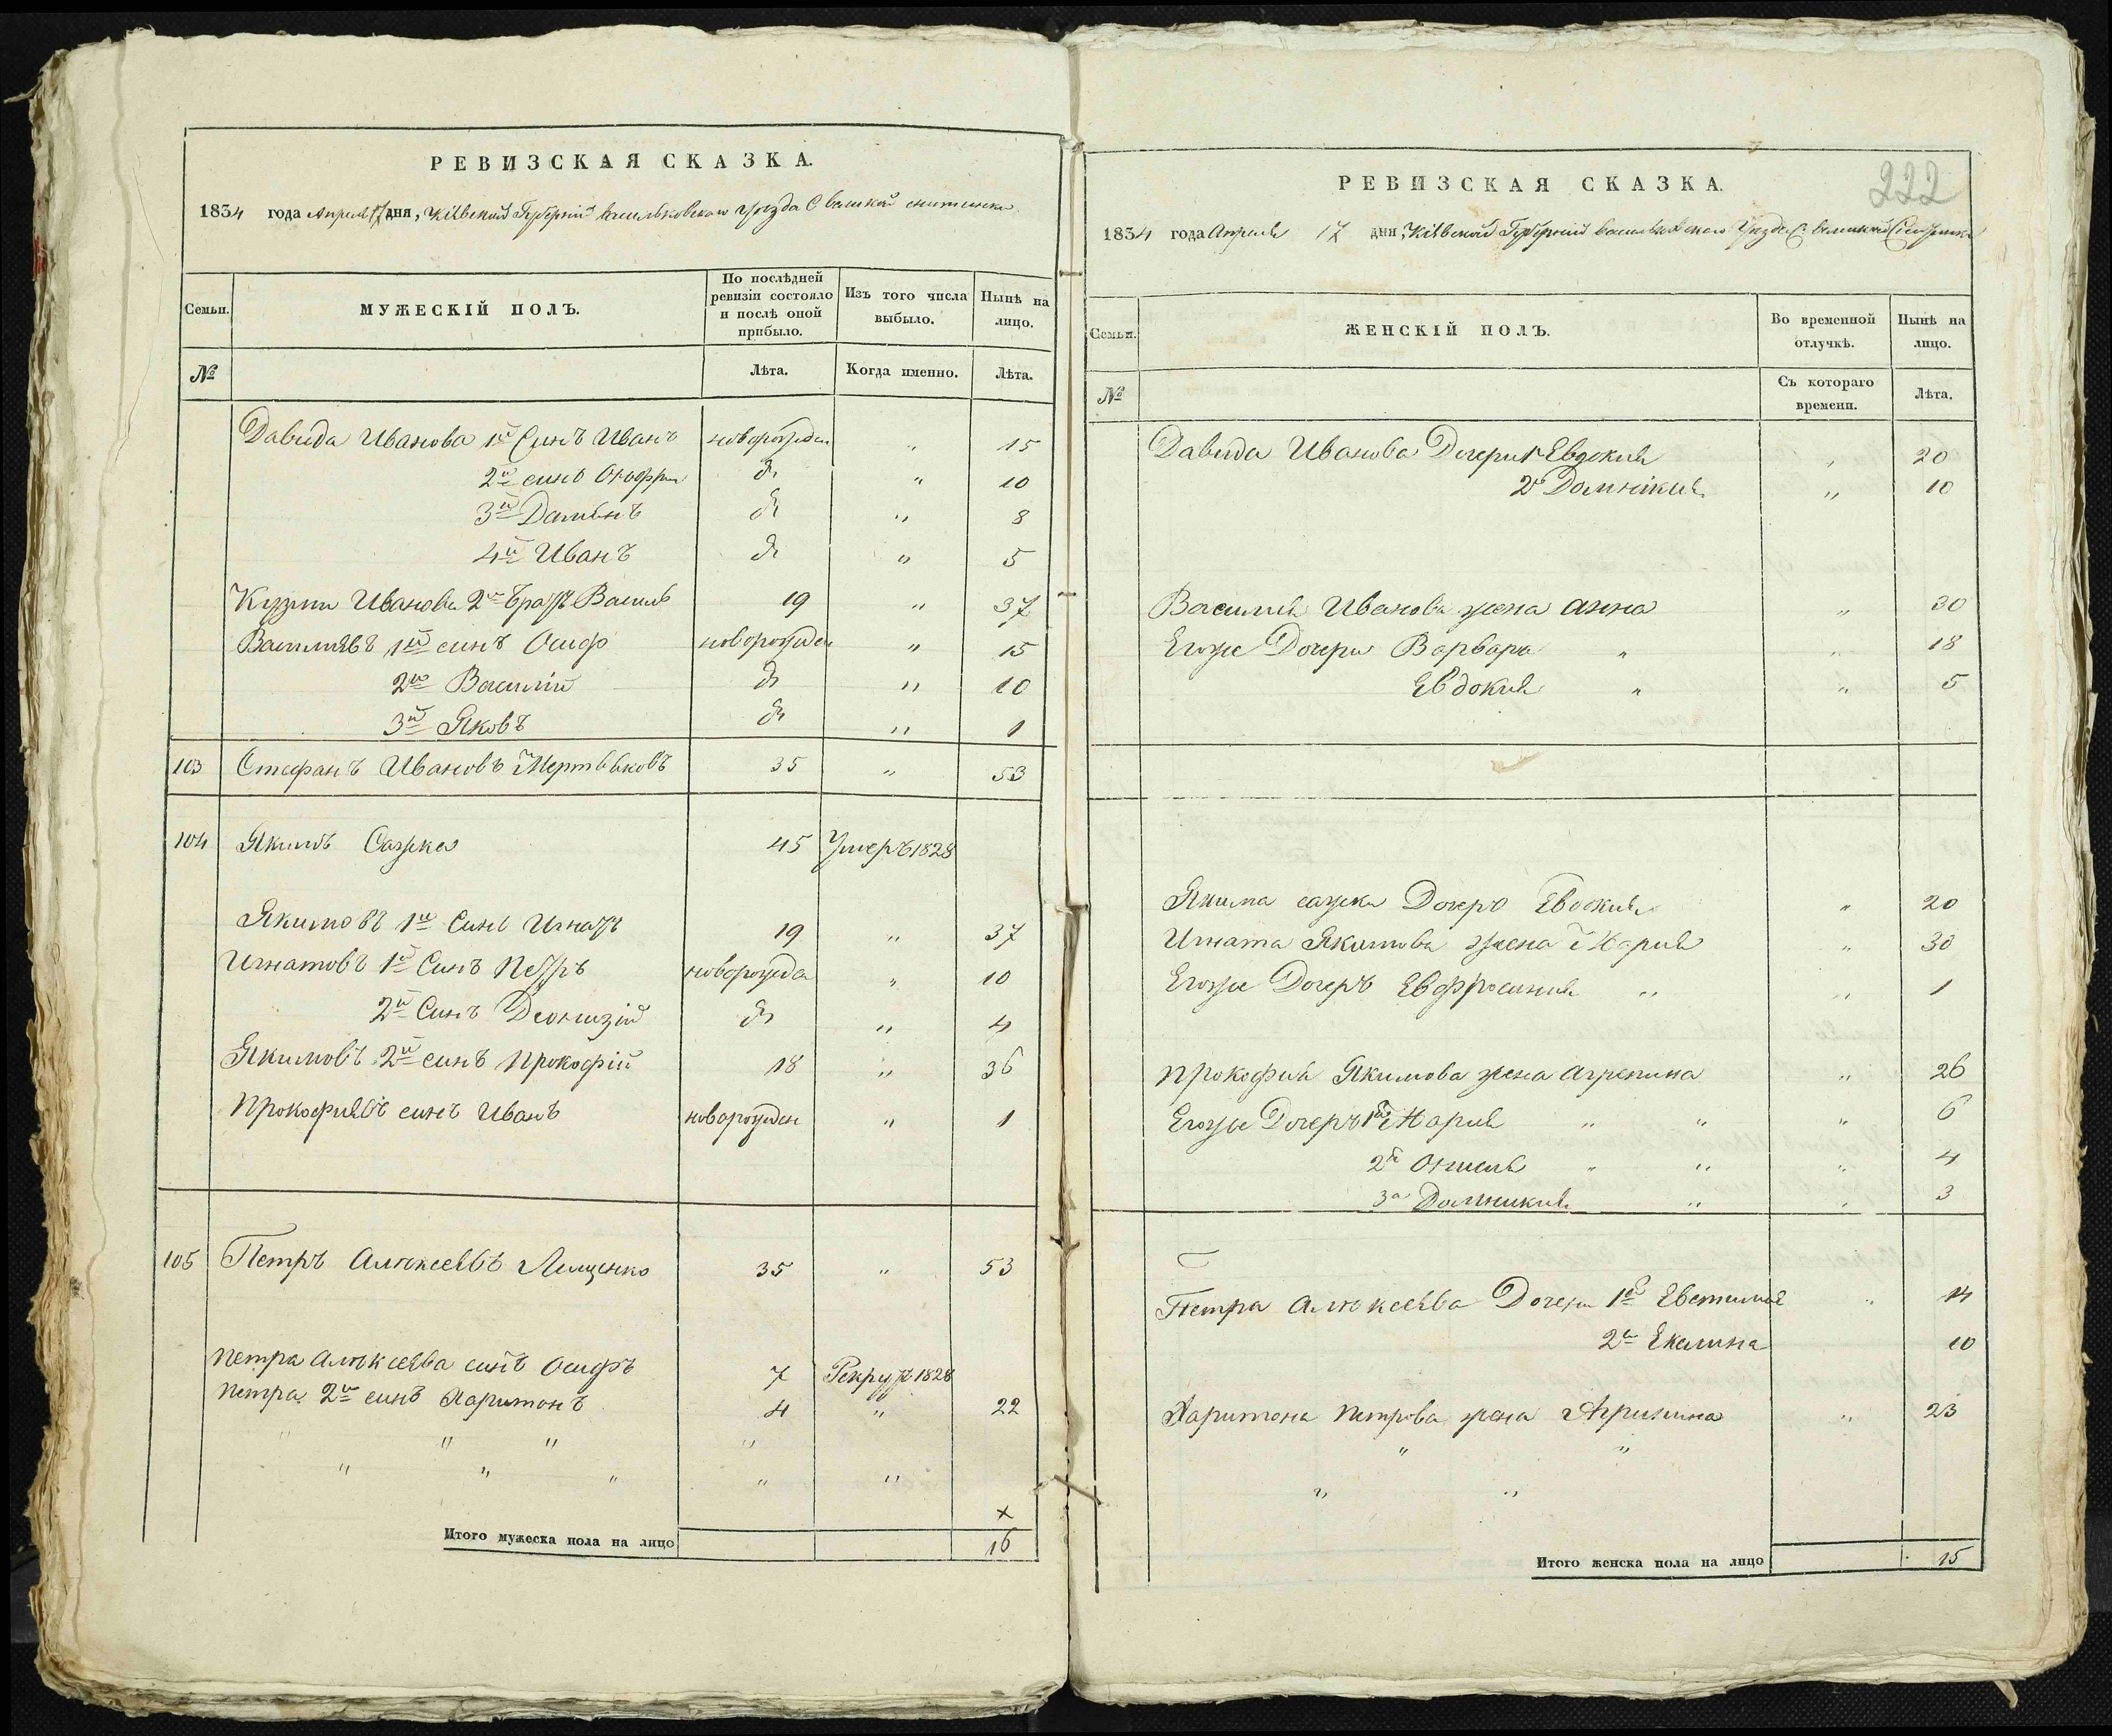 РЕВИЗСКАЯ СКАЗКА.
1834 года Апреля 17 дня, Кіевской Губерній Васильковскаго уезда С Великой Снитинки
Семьи. МУЖЕСКІЙ ПОЛЪ. По послѣдней ревизіи состояло и послѣ оной прибыло. Изъ того числа выбыло. Нынѣ на лицо.
№ Лѣта. Когда именно. Лѣта.
Давида Иванова 1й Синъ Иванъ новорожден " 15
2й синъ Онофри д " 10
3й Даміянъ д " 8
4й Иванъ д " 5
Кузми Иванова 2й братъ Василь 19 " 37
Васильевъ 1й синъ Осиф новорожден " 15
2й Василій д " 10
3й Яковъ д " 1
103 Стефанъ Ивановъ 35 " 53
104 Якимъ Сажка 45 Умеръ 1828
Якимовъ 1й Синъ Игнатъ 19 " 37
Игнатовъ 1й Синъ Петръ новорожден " 10
2й Синъ Деонизій д " 4
Якимовъ 2й синъ Прокофій 18 " 36
Прокофиевъ синъ Иванъ новорожден " 1
105 Петръ Алексеевъ Лещенко 35 " 53
Петра Алексеева синъ Осифъ 7 Рекрут 1828
Петра 2й синъ Харитонъ 4 " 22
" " " "
" " " " "
×
Итого мужеска пола на лицо 16
222
РЕВИЗСКАЯ СКАЗКА.
1834 года Апреля 17 дня, Кіевской Губерній Васильковскаго Уезда С. Великой Снитинки
Семьи. ЖЕНСКІЙ ПОЛЪ. Во временной отлучкѣ. Нынѣ на лицо.
№ Съ котораго времени. Лѣта.
Давида Иванова Дочери 1 Евдокия " 20
2я Домникия " 10
Василия Иванова жена Анна " 30
Егоже Дочери Варвара " " 18
Евдокия " " 5
Якима сажки Дочеръ Евдокия " 20
Игната Якимова жена Мария " 30
Егоже Дочеръ Евфросиния " " 1
Прокофия Якимова жена Агрепина " 26
Егоже Дочеръ 1я Мария " " " 6
2я " " " 4
3а Домникия " " 3
Петра Алексеева Дочери 1я " 14
2я 10
Харитона Петрова жена Агрипина " 23
" "
" "
Итого женска пола на лицо 15